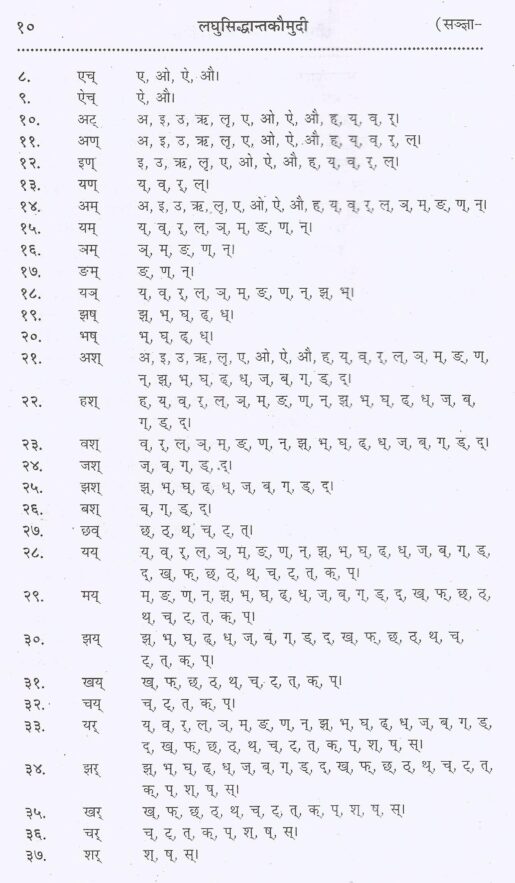 १० लघुसिद्धान्तकौमुदी (सञ्ज्ञा-
८. एच् ए, ओ, ऐ, औ।
९. ऐच् ऐ, औ।
१०. अट् अ, इ, उ, ऋ, लृ, ए, ओ, ऐ, औ, ह्, य्, व्, र्।
११. अण् अ, इ, उ, ऋ, लृ, ए, ओ, ऐ, औ, ह्, य्, व्, र्, ल्।
१२. इण् इ, उ, ऋ, लृ, ए, ओ, ऐ, औ, ह्, य्, व्, र्, ल्।
१३. यण् य्, व्, र्, ल्।
१४. अम् अ, इ, उ, ऋ, लृ, ए, ओ, ऐ, औ, ह्, य्, व्, र्, ल्, ञ्, म्, ङ्, ण्, न्।
१५. यम् य्, व्, र्, ल्, ञ्, म्, ङ्, ण्, न्।
१६. ञम् ञ्, म्, ङ्, ण्, न्।
१७. ङम् ङ्, ण्, न्।
१८. यञ् य्, व्, र्, ल्, ञ्, म्, ङ्, ण्, न्, झ्, भ्।
१९. झष् झ्, भ्, घ्, ढ्, ध्।
२०. भष् भ्, घ्, ढ्, ध्।
२१. अश् अ, इ, उ, ऋ, लृ, ए, ओ, ऐ, औ, ह्, य्, व्, र्, ल्, ञ्, म्, ङ्, ण्,
न्, झ्, भ्, घ्, ढ्, ध्, ज्, ब्, ग्, ड्, द्।
२२. हश् ह्, य्, व्, र्, ल्, ञ्, म्, ङ्, ण्, न्, झ्, भ्, घ्, ढ्, ध्, ज्, ब्,
ग्, ड्, द्।
२३. वश् व्, र्, ल्, ञ्, म्, ङ्, ण्, न्, झ्, भ्, घ्, ढ्, ध्, ज्, ब्, ग्, ड्, द्।
२४. जश् ज्, ब्, ग्, ड्, द्।
२५. झश् झ्, भ्, घ्, ढ्, ध्, ज्, ब्, ग्, ड्, द्।
२६. बश् ब्, ग्, ड्, द्।
२७. छव् छ्, ठ्, थ्, च्, ट्, त्।
२८. यय् य्, व्, र्, ल्, ञ्, म्, ङ्, ण्, न्, झ्, भ्, घ्, ढ्, ध्, ज्, ब्, ग्, ड्,
द्, ख्, फ्, छ्, ठ्, थ्, च्, ट्, त्, क्, प्।
२९. मय् म्, ङ्, ण्, न्, झ्, भ्, घ्, ढ्, ध्, ज्, ब्, ग्, ड्, द्, ख्, फ्, छ्, ठ्,
थ्, च्, ट्, त्, क्, प्।
३०. झय् झ्, भ्, घ्, ढ्, ध्, ज्, ब्, ग्, ड्, द्, ख्, फ्, छ्, ठ्, थ्, च्,
ट्, त्, क्, प्।
३१. खय् ख्, फ्, छ्, ठ्, थ्, च्, ट्, त्, क्, प्।
३२. चय् च्, ट्, त्, क्, प्।
३३. यर् य्, व्, र्, ल्, ञ्, म्, ङ्, ण्, न्, झ्, भ्, घ्, ढ्, ध्, ज्, ब्, ग्, ड्,
द्, ख्, फ्, छ्, ठ्, थ्, च्, ट्, त्, क्, प्, श्, ष्, स्।
३४. झर् झ्, भ्, घ्, ढ्, ध्, ज्, ब्, ग्, ड्, द्, ख्, फ्, छ्, ठ्, थ्, च्, ट्, त्,
क्, प्, श्, ष्, स्।
३५. खर् ख्, फ्, छ्, ठ्, थ्, च्, ट्, त्, क्, प्, श्, ष्, स्।
३६. चर् च्, ट्, त्, क्, प्, श्, ष्, स्।
३७. शर् श्, ष्, स्।